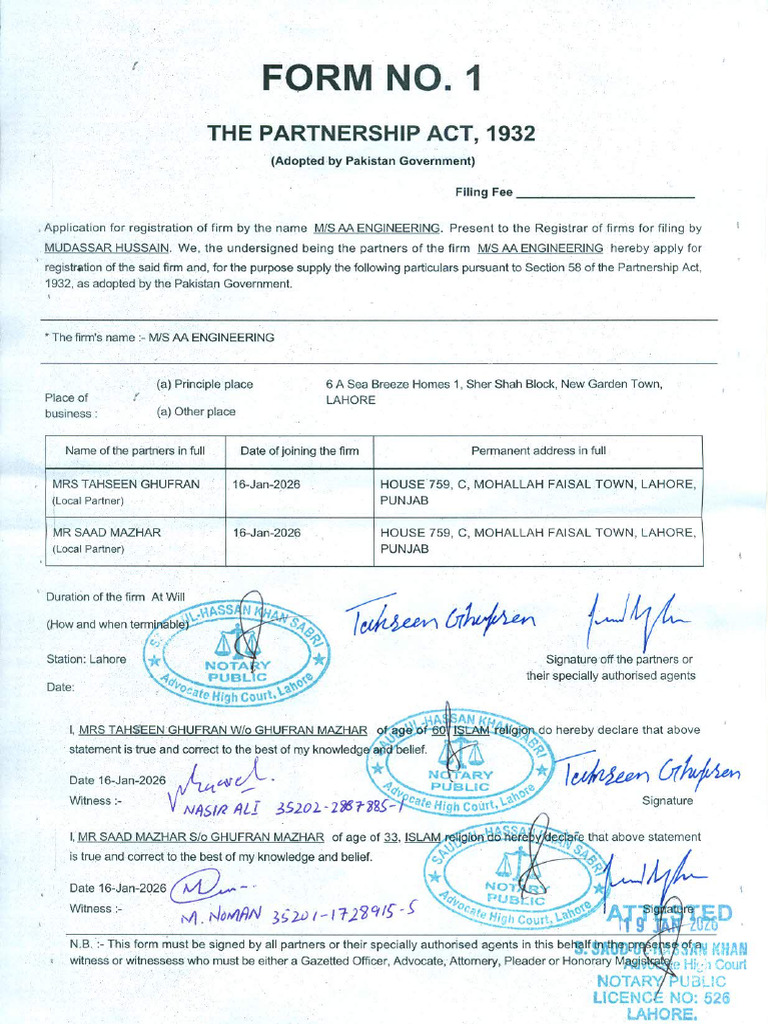 FORM NO. 1
THE PARTNERSHIP ACT, 1932
(Adopted by Pakistan Government)
Filing Fee
Application for registration of firm by the name M/S AA ENGINEERING. Present to the Registrar of firms for filing by
MUDASSAR HUSSAIN. We, the undersigned being the partners of the firm M/S AA ENGINEERING hereby apply for
registration of the said firm and, for the purpose supply the following particulars pursuant to Section 58 of the Partnership Act,
1932, as adopted by the Pakistan Government.
* The firm's name :- M/S AA ENGINEERING
Place of business :
(a) Principle place 6 A Sea Breeze Homes 1, Sher Shah Block, New Garden Town,
LAHORE
(a) Other place
Name of the partners in full Date of joining the firm Permanent address in full
MRS TAHSEEN GHUFRAN 16-Jan-2026 HOUSE 759, C, MOHALLAH FAISAL TOWN, LAHORE,
(Local Partner) PUNJAB
MR SAAD MAZHAR 16-Jan-2026 HOUSE 759, C, MOHALLAH FAISAL TOWN, LAHORE,
(Local Partner) PUNJAB
Duration of the firm At Will
(How and when terminable)
Tahseen Ghufran
SAUD-UL-HASSAN KHAN SABRI
NOTARY
PUBLIC
Advocate High Court, Lahore
Station: Lahore
Signature off the partners or
their specially authorised agents
Date:
I, MRS TAHSEEN GHUFRAN W/o GHUFRAN MAZHAR of age of 60, ISLAM religion do hereby declare that above
statement is true and correct to the best of my knowledge and belief.
SAUD-UL-HASSAN KHAN SABRI
NOTARY
PUBLIC
Advocate High Court, Lahore
Date 16-Jan-2026
Tahseen Ghufran
Witness :-
NASIR ALI 35202-2867885-1
Signature
I, MR SAAD MAZHAR S/o GHUFRAN MAZHAR of age of 33, ISLAM religion do hereby declare that above statement
is true and correct to the best of my knowledge and belief.
SAUD-UL-HASSAN KHAN SABRI
NOTARY
PUBLIC
Advocate High Court, Lahore
Date 16-Jan-2026
Witness :-
M. NOMAN 35201-1728915-5
Signature
ATTESTED
19 JAN 2026
N.B. :- This form must be signed by all partners or their specially authorised agents in this behalf in the presense of a
witness or witnessess who must be either a Gazetted Officer, Advocate, Attorney, Pleader or Honorary Magistrate.
S. SAUD-UL-HASSAN KHAN
Advocate High Court
NOTARY PUBLIC
LICENCE NO: 526
LAHORE.